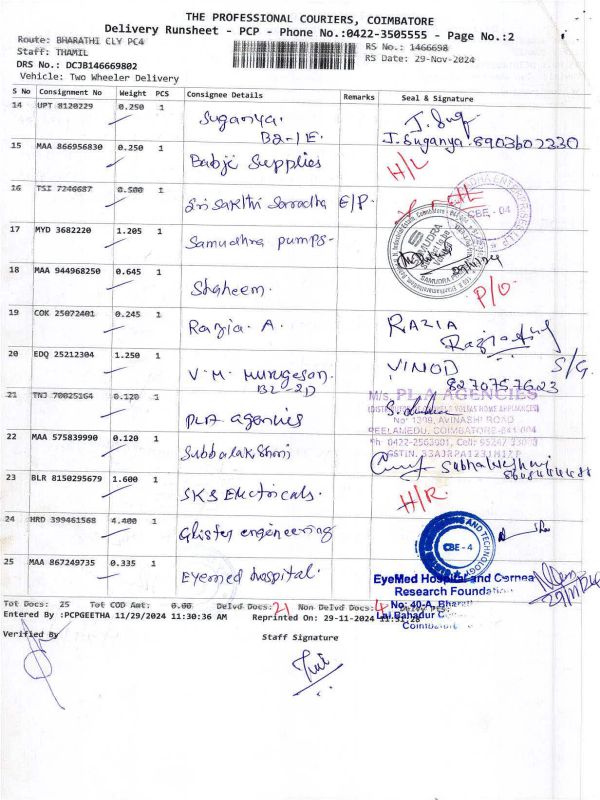 THE PROFESSIONAL COURIERS, COIMBATORE
Delivery Runsheet - PCP - Phone No.:0422-3505555 - Page No.:2
Route: BHARATHI CLY PC4
RS No.: 1466698
Staff: THAMIL
RS Date: 29-Nov-2024
DRS No.: DCJB146669802
Vehicle: Two Wheeler Delivery
S No Consignment No Weight PCS Consignee Details Remarks Seal & Signature
14 UPT 8120229 0.250 1 Suganya. B2-1E. J. Sug
J. Suganya 8903602330
15 MAA 866956830 0.250 1 Babji Supplies H/L
16 TSI 7246687 0.500 1 Sri Sakthi Sarradha E/P.
CBE - 04
17 MYD 3682220 1.205 1 Samudhra pumps-
18 MAA 944968250 0.645 1 Shaheem. P/O
19 COK 25072401 0.245 1 Razia. A. RAZIA
20 EDQ 25212304 1.250 1 V. M. Murugesan. B2-2D VINOD S/G.
8270757623
21 TNJ 70025164 0.120 1 PLA agencies
M/s. PLA AGENCIES
No 1399, AVINASHI ROAD
PEELAMEDU, COIMBATORE-641 004
22 MAA 575839990 0.120 1 Subbalakshmi
23 BLR 8150295679 1.600 1 SKS Electricals. H/R.
24 HRD 399461568 4.400 1 Glister engineering
CBE - 4
25 MAA 867249735 0.335 1 Eyemed hospital.
EyeMed Hospital and Cornea
Research Foundation
No: 40-A,
Lal Bahadur
29/11/24
Tot Docs: 25 Tot COD Amt: 0.00 Delvd Docs: 21 Non Delvd Docs: 4 Delvy Pts:
Entered By :PCPGEETHA 11/29/2024 11:30:36 AM Reprinted On: 29-11-2024 11:31:28
Verified By Staff Signature